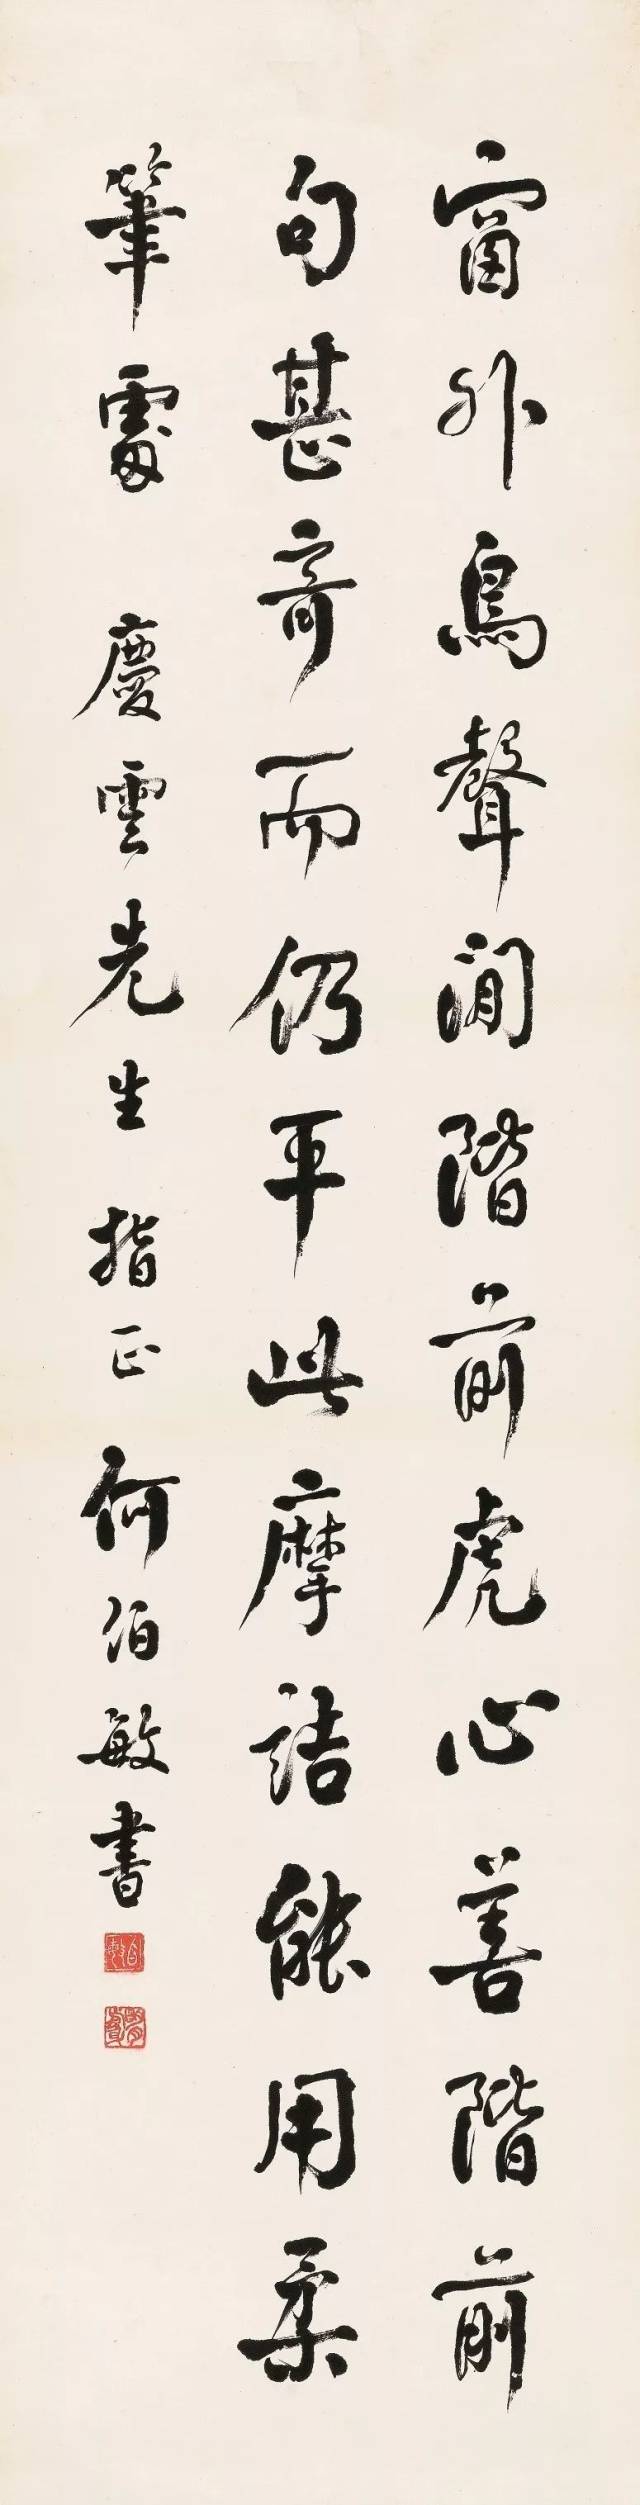 窗外鳥聲閒階前虎心善階前
句甚奇而仍平此摩詰能用柔
筆處 慶雲先生 指正 何伯敏書
伯敏